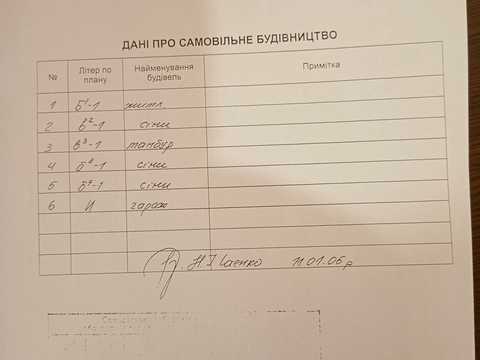 ДАНІ ПРО САМОВІЛЬНЕ БУДІВНИЦТВО
№ Літер по плану Найменування будівель Примітка
1 б¹-1 житл
2 б²-1 сіни
3 б³-1 тамбур
4 -1 сіни
5 -1 сіни
6 И гараж
11.01.06 р